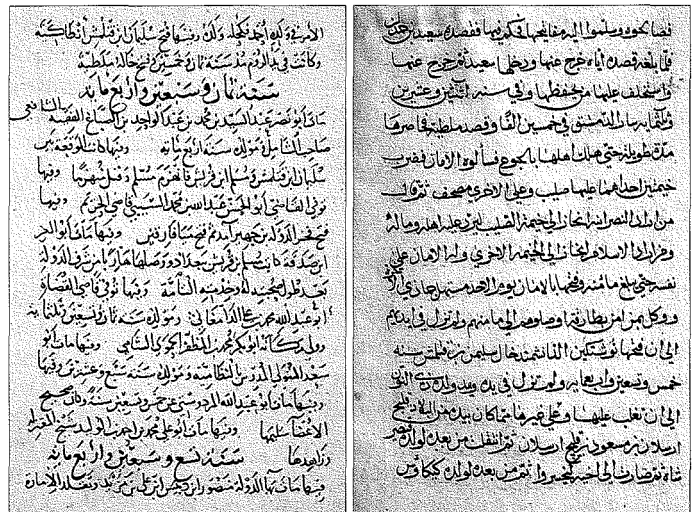 فصالحوه وسلموا اليه مفاتيحها فكبر فيها فقصده سعيد بن حمدان
فلما بلغه قصده اياه خرج عنها ودخلها سعيد ثم خرج عنها
واستخلف عليها من يحفظها وفي سنه اثنتين وعشرين
وثلثمايه سار الدمستق في خمسين الفا وقصد ملطية فحاصرها
مدة طويلة حتى هلك اهلها بالجوع فسألوه الامان فضرب
خيمتين احداهما عليها صليب وعلى الاخرى مصحف ثم قال
من اراد النصرانية انحاز الى خيمة الصليب ليرد عليه اهله وماله
ومن اراد الاسلام انحاز الى الخيمة الاخرى وله الامان على
نفسه حتى يبلغ مأمنه وفتحها بالامان يوم الاحد مستهل جمادى
ووكل بهم من بطارقته واوصلوهم الى مأمنهم ولم تزل في ايديهم
الى ان فتحها
خمس وتسعين واربعمايه ولم تزل في يده ويد ولده
الى ان تغلب عليها وعلى غيرها مما كان بيده من البلاد قلج
ارسلان بن مسعود بن قلج ارسلان ثم انتقلت من بعده لولده قيصر
شاه ثم صارت الى اخيه كيخسرو ثم من بعده لولده كيكاوس
الامير وولده احمد وكذلك وفيها فتح سليمان بن قتلمش انطاكية
وكانت في يد الروم منذ سنة ثمان وخمسين وثلثمايه
سنة ثمان وسبعين واربع مايه
مات ابو نصر عبد السيد بن محمد بن عبد الواحد بن الصباغ الفقيه الشافعي
صاحب الشامل ومولده سنة اربع مايه وفيها كانت الوقعة بين
سليمان بن قتلمش ومسلم بن قريش فانهزم مسلم وقتل وفيها
توفي القاضي ابو الحسن عبد الله بن محمد قاضي الحريم وفيها
فتح فخر الدولة بن جهير آمد ثم فتح ميافارقين وفيها مات ابو
ابن صدقة كاتب مسلم بن قريش ببغداد وصلها هاربا من شرف الدولة
بعد طول صحبته له وخدمته التامة وفيها توفي قاضي القضاة
ابو عبد الله محمد بن علي الدامغاني ومولده سنة ثمان وتسعين وثلثمايه
وولي مكانه ابو بكر محمد بن المظفر الحموي الشامي وفيها مات ابو
سعد المتولي المدرس بالنظامية ومولده سنة سبع وعشرين وفيها
وفيها مات ابو عبد الله عن خمس وتسعين سنة وكان صحيح
الاعضا سليمها وفيها مات ابو علي محمد بن احمد بن الوليد شيخ المعتزلة
وزاهدها سنة تسع وسبعين واربع مايه
فيها مات بهاء الدولة منصور بن دبيس بن علي بن مزيد وتقلد الامارة